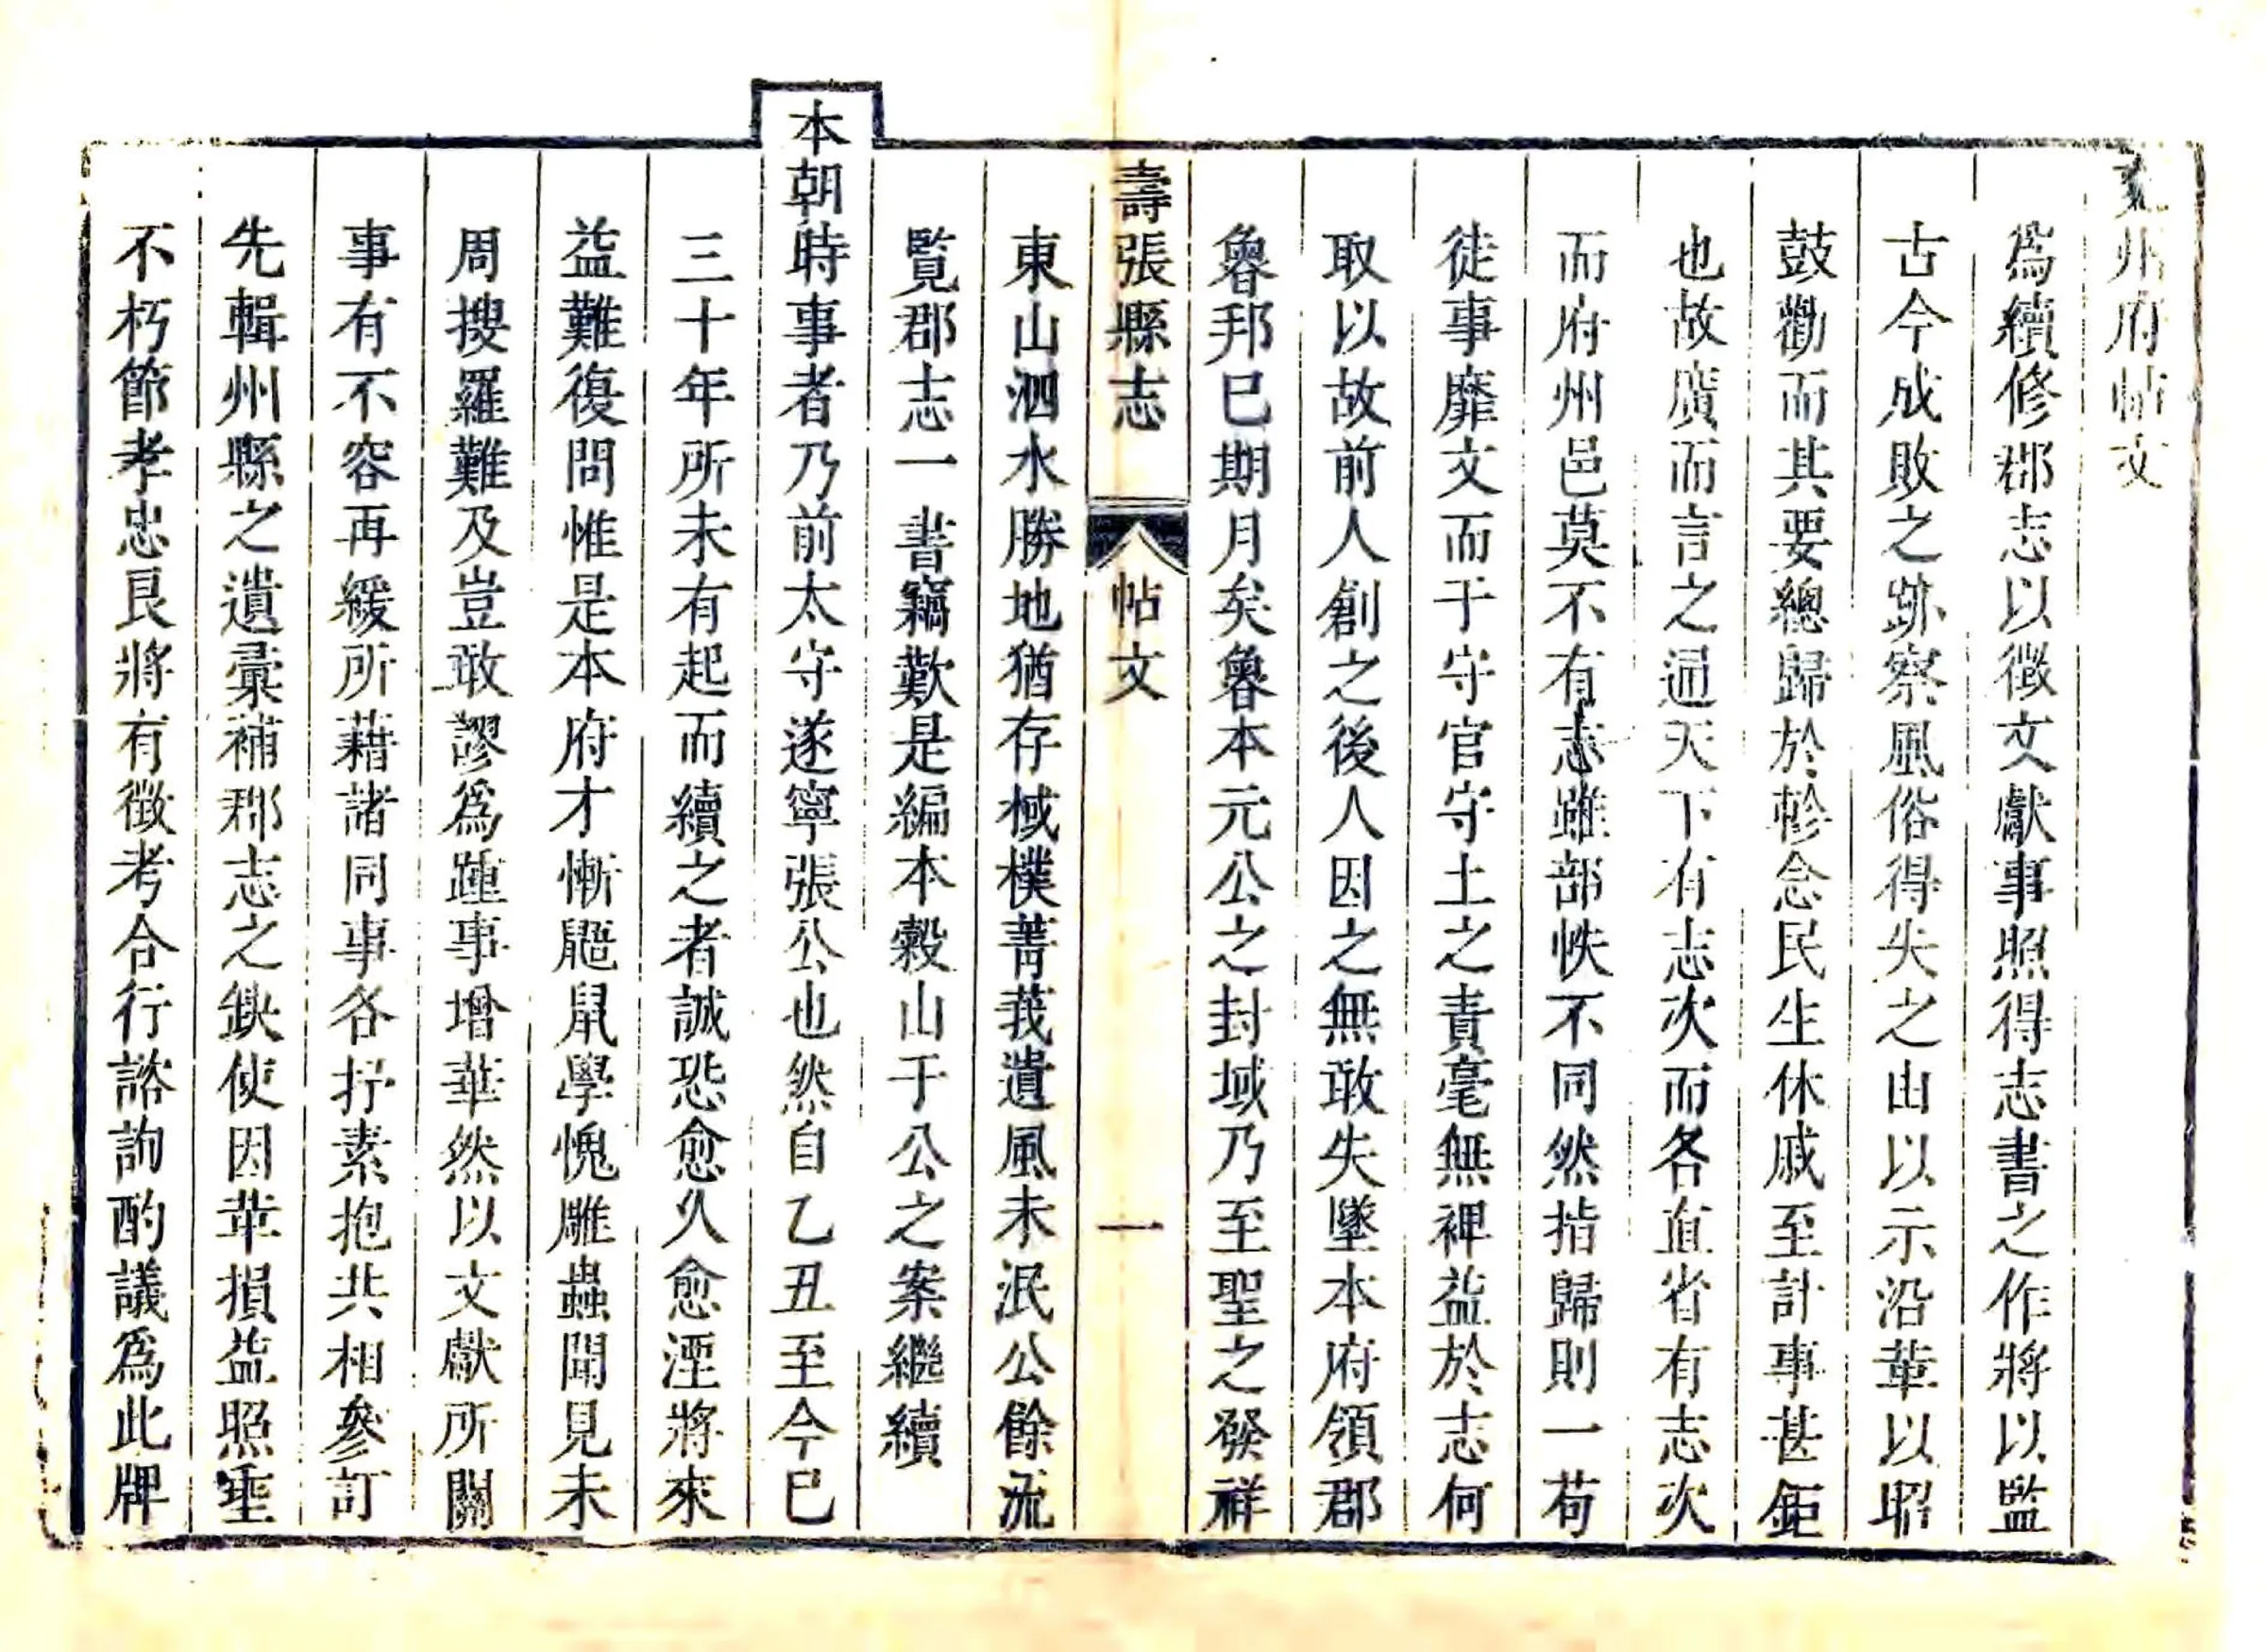 兖州府帖文
爲續修郡志以徵文獻事照得志書之作將以監
古今成敗之跡察風俗得失之由以示沿革以昭
鼓勸而其要總歸於軫念民生休戚至計事甚鉅
也故廣而言之通天下有志次而各直省有志次
而府州邑莫不有志雖部帙不同然指歸則一苟
徒事靡文而于守官守土之責毫無裨益於志何
取以故前人創之後人因之無敢失墜本府領郡
魯邦巳期月矣魯本元公之封域乃至聖之發祥
壽張縣志 帖文 一
東山泗水勝地猶存棫樸菁莪遺風未泯公餘流
覽郡志一書竊歎是編本穀山于公之案繼續
本朝時事者乃前太守遂寧張公也然自乙丑至今巳
三十年所未有起而續之者誠恐愈久愈湮將來
益難復問惟是本府才慚鼯鼠學愧雕蟲聞見未
周搜羅難及豈敢謬爲踵事增華然以文獻所關
事有不容再緩所藉諸同事各抒素抱共相參訂
先輯州縣之遺彙補郡志之缺使因革損益照垂
不朽節孝忠良將有徵考合行諮詢酌議爲此牌